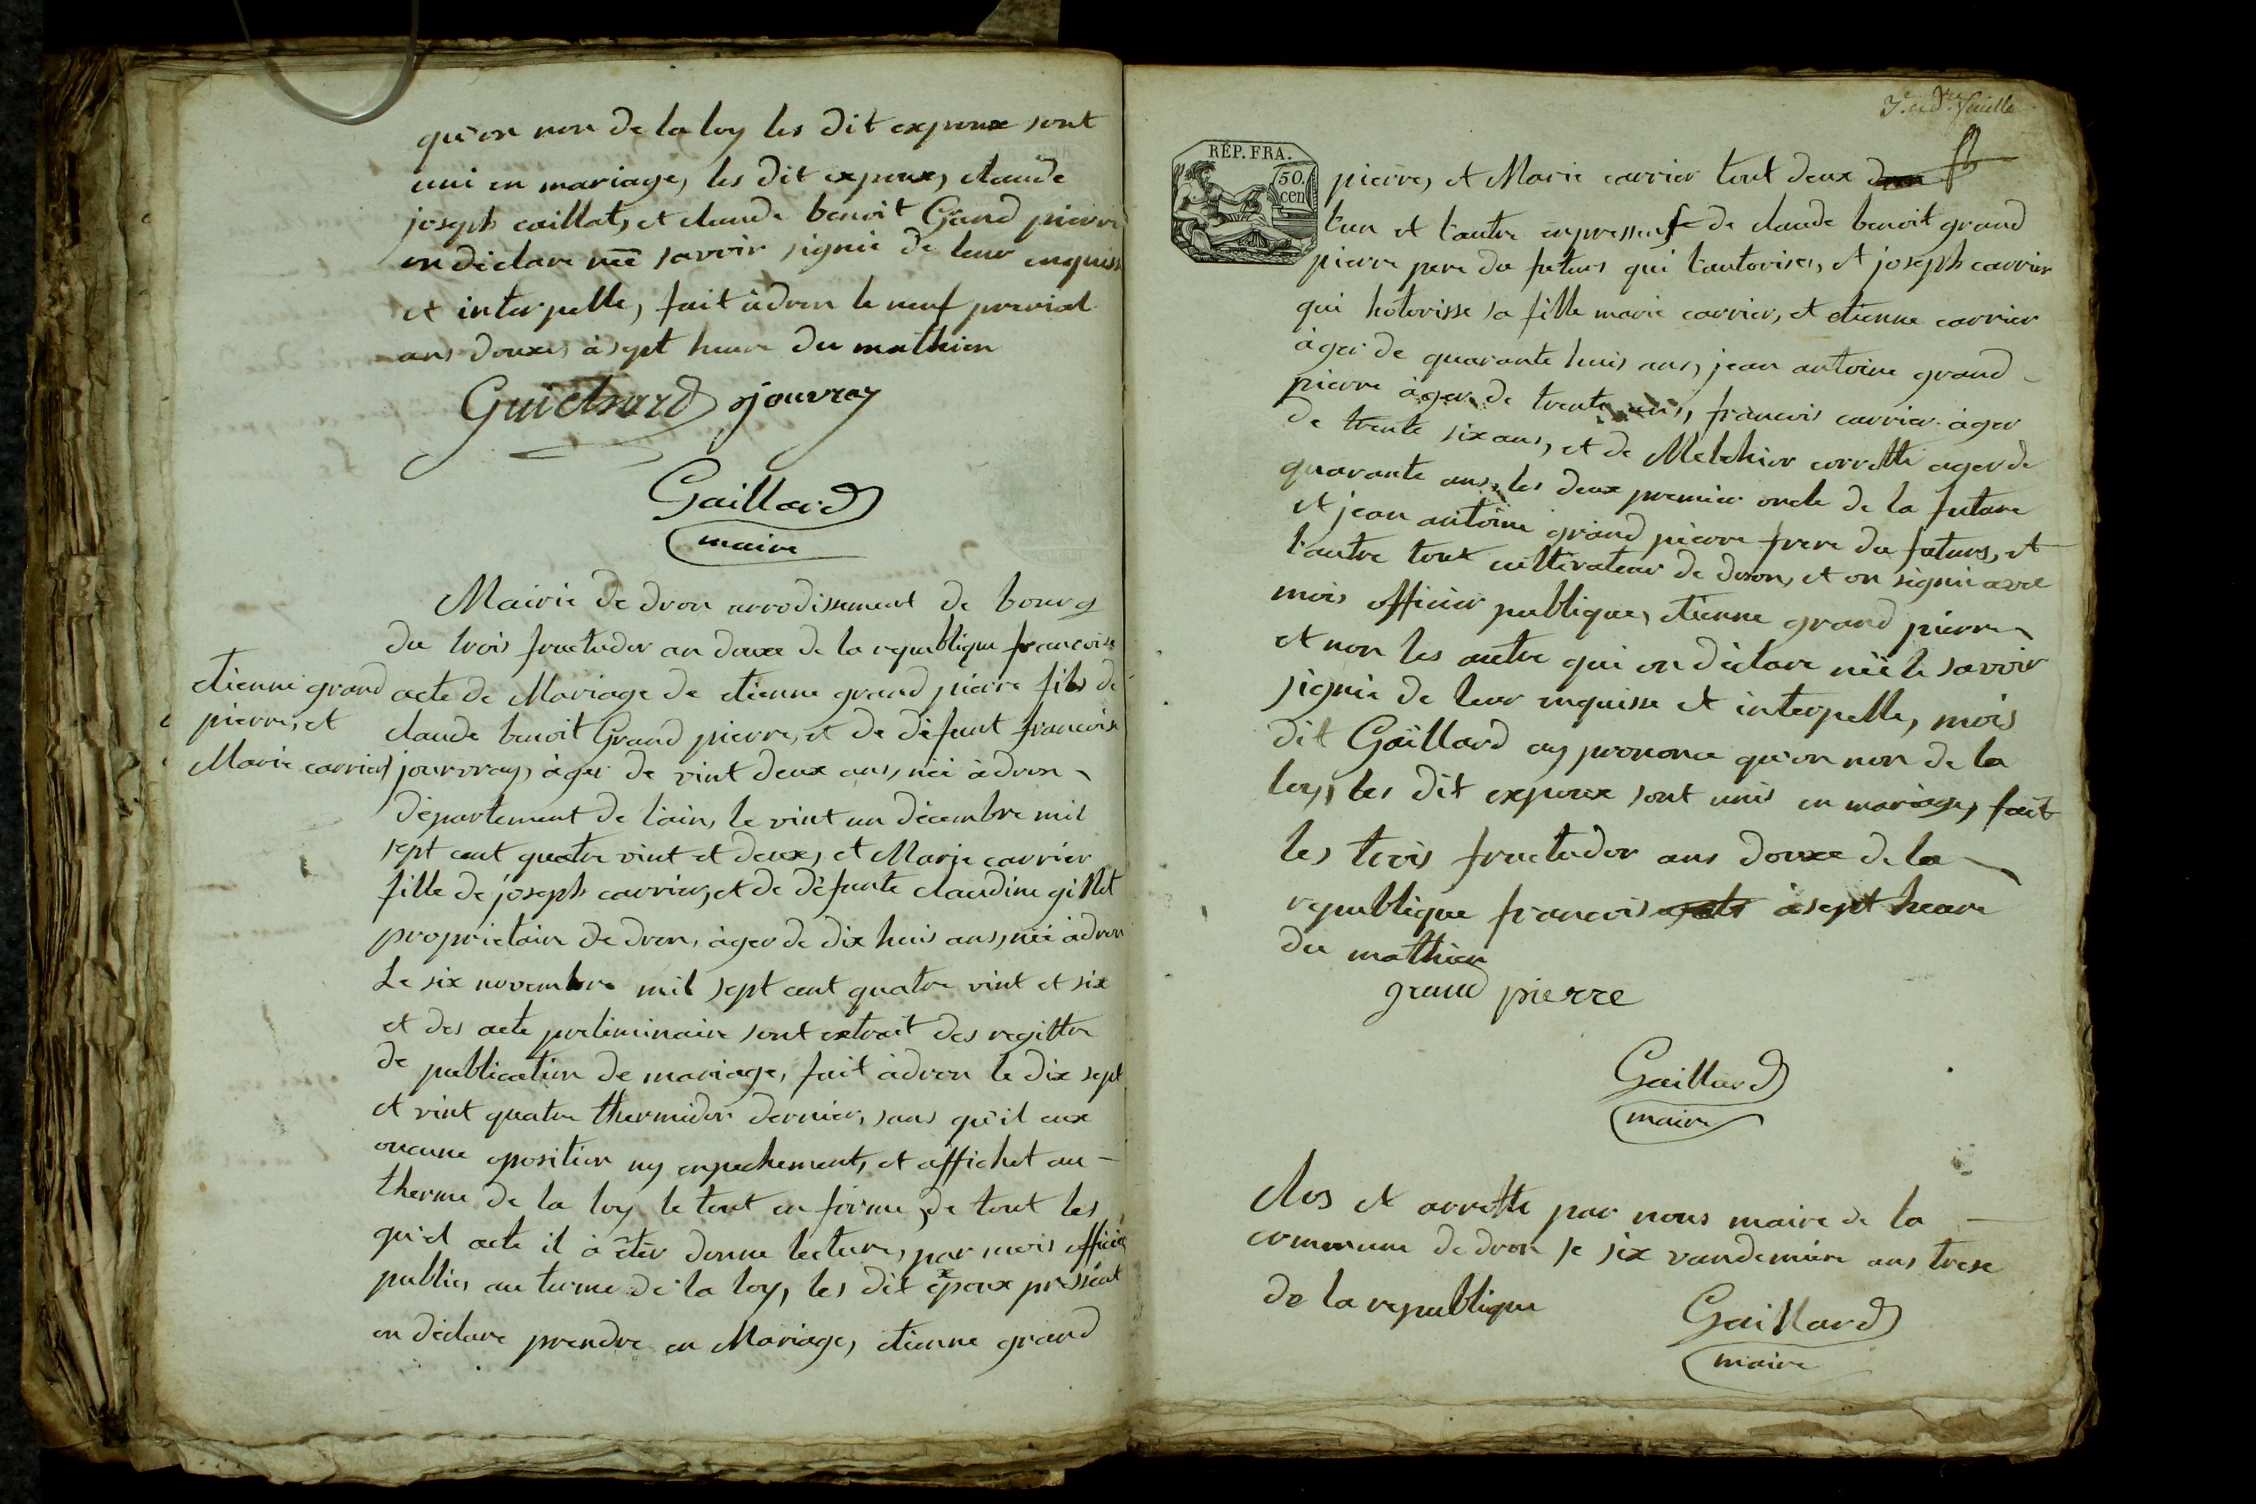 qu'on non de la loy les dit expoux sont
uni en mariage, les dit expoux, claude
joseph caillat, et claude benoit Grand pierre
on déclare née savoir signié de leur enquise
et interpelle, fait à dron le neuf prerial
ans douxe, à sept heure du mathien
Guichard jouvray
Gaillard
maire
Mairie de dron arrodissement de bourg
du trois fructudor an douxe de la republique francoise
etienne grand
pierre, et
Marie carrier
acte de Mariage de etienne grand pierre fils de
claude benoit Grand pierre, et de défeut francoise
jourvray, àger de vint deux ans, née à dron
département de l'ain, le vint un décembre mil
sept cent quatre vint et deux, et Marie carrier
fille de joseph carrier, et de défunte claudine gillet
proprietaire de dron, àger de dix huis ans, née à dron
Le six novembre mil sept cent quatre vint et six
et des acte preliminaire sont extrait des regittre
de publication de mariage, fait à dron le dix sept
et vint quatre thermidor dernier, sans qu'il eux
oucune oposition ny enpechement, et affichet au
therme de la loy le tout en forme, de tout les
qu'el acte il à étér donne lecture, par mois officier
publics au terme de la loy, les dit expoux present
on déclare prendre en Mariage, etienne grand
3e et dre feuille
RÉP. FRA.
50.
cen
pierre, et Marie carrier tout deux
l'un et l'autre enpressense de claude benoit grand
pierre pere du futurs qui l'autoriser, et joseph carrier
qui hotorisse sa fille marie carrier, et etienne carrier
àger de quarante huis ans, jean antoine grand
pierre àger de trente ans, francois carrier àger
de trente six ans, et de Melchior corrette ager de
quarante ans, les deux premier oncle de la future
et jean antoine grand pierre frere du futurs, et
l'autre tout cultivateur de dron, et on signié avec
mois officier publique, etienne grand pierre
et non les autre qui on déclare née le savoir
signié de leur enquisse et interpelle, mois
dit Gaillard ay prononce qu'on non de la
loy, les dit expoux sont unis en mariage, fait
les trois fructudor ans douxe de la
republique francois à sept heure
du mathien
grand pierre
Gaillard
maire
clos et arrette par nous maire de la
commune de dron le six vandemiere ans trese
de la republique
Gaillard
maire